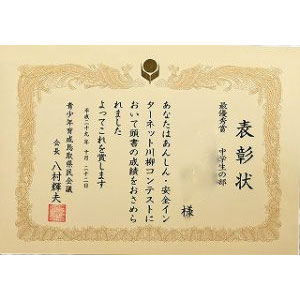 表彰状
最優秀賞 中学生の部
様
あなたはあんしん・安全イン
ターネット川柳コンテストに
おいて頭書の成績をおさめら
れました
よってこれを賞します
平成二十九年十月二十二日
青少年育成鳥取県民会議
会長 八村輝夫